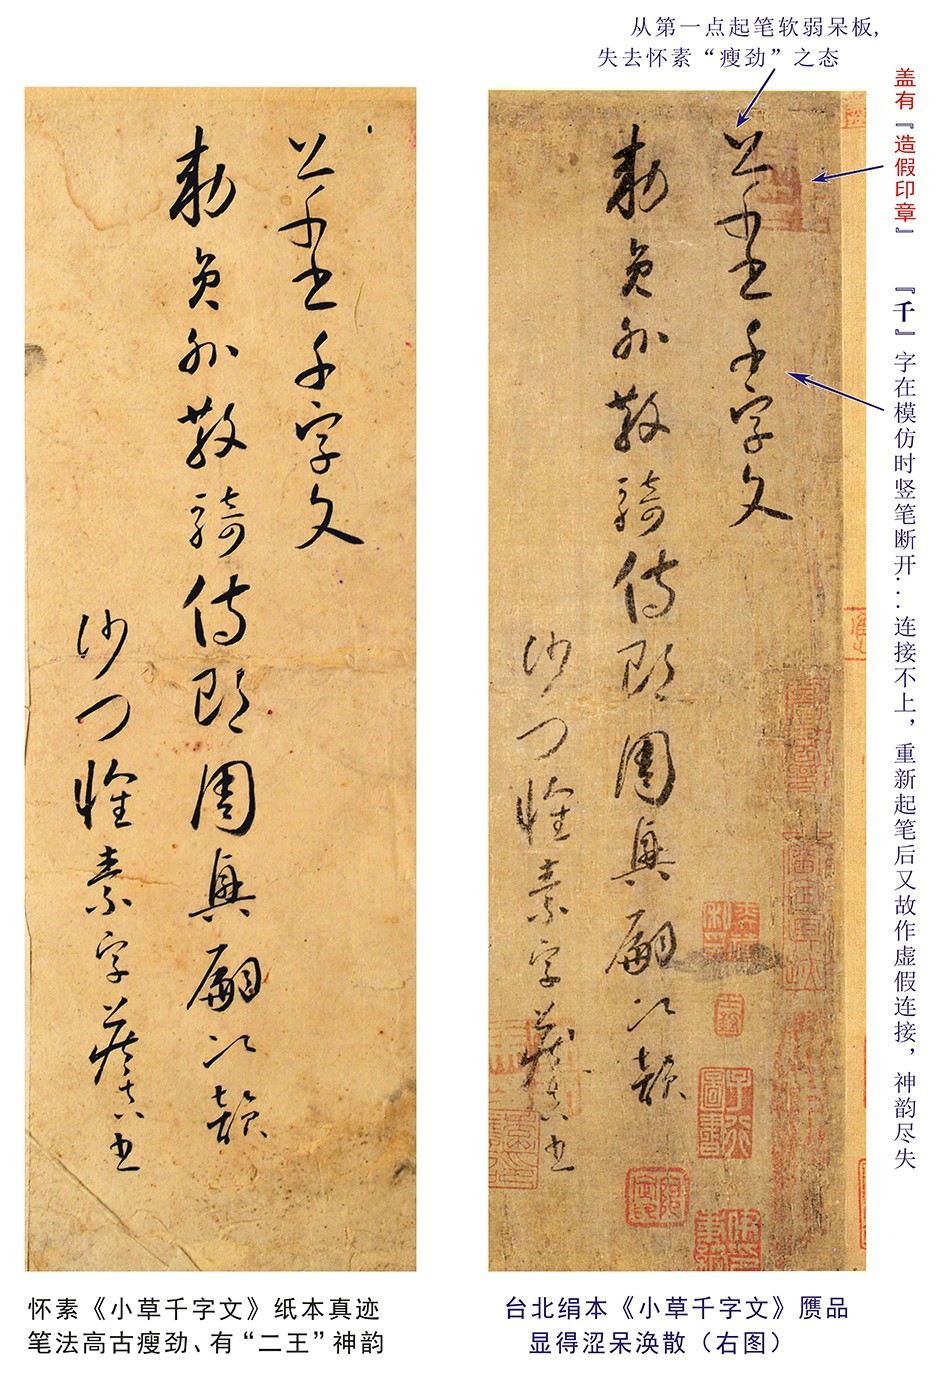 从第一点起笔软弱呆板，
失去怀素“瘦劲”之态
盖有『造假印章』
『千』字在模仿时竖笔断开...连接不上，重新起笔后又故作虚假连接，神韵尽失
草書千字文
勅員外散騎侍郎周興嗣次韻
沙門懷素字藏真書
草書千字文
勅員外散騎侍郎周興嗣次韻
沙門懷素字藏真書
怀素《小草千字文》纸本真迹
笔法高古瘦劲、有“二王”神韵
台北绢本《小草千字文》赝品
显得涩呆涣散（右图）